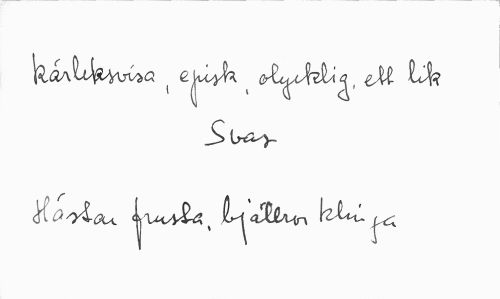 Kärleksvisa, episk, olycklig, ett lik
Svar
Hästar frusta, bjällror klinga